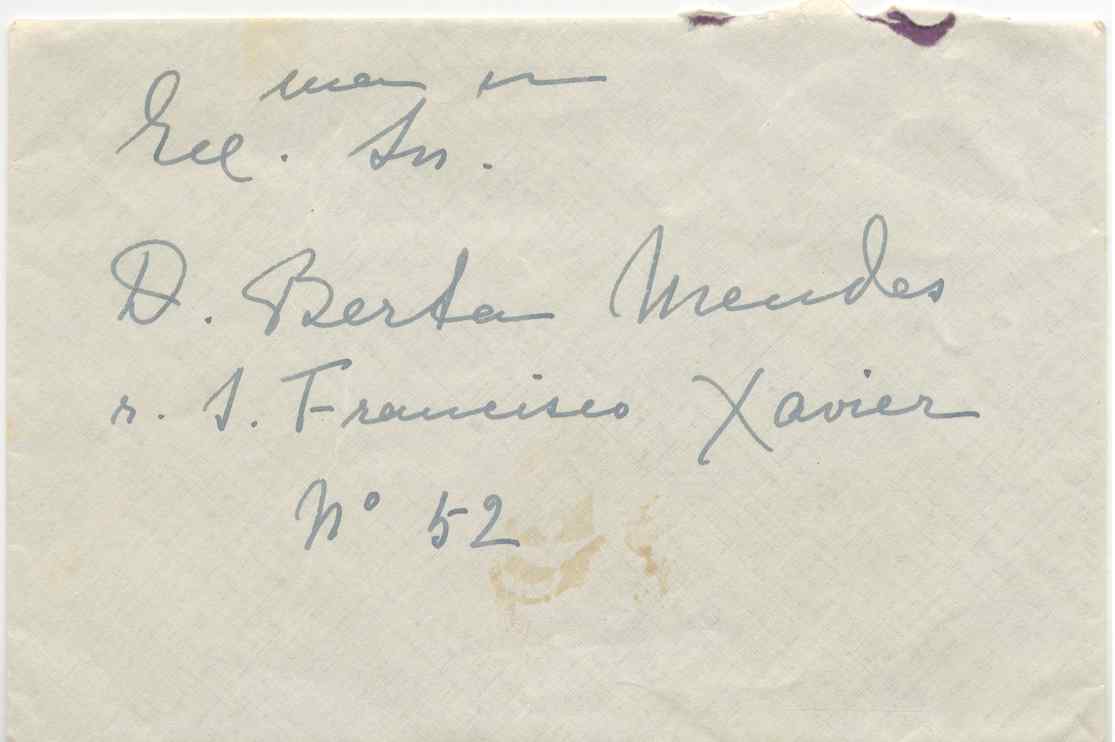 Exc.ma Sr.a
D. Berta Mendes
r. S. Francisco Xavier
Nº 52